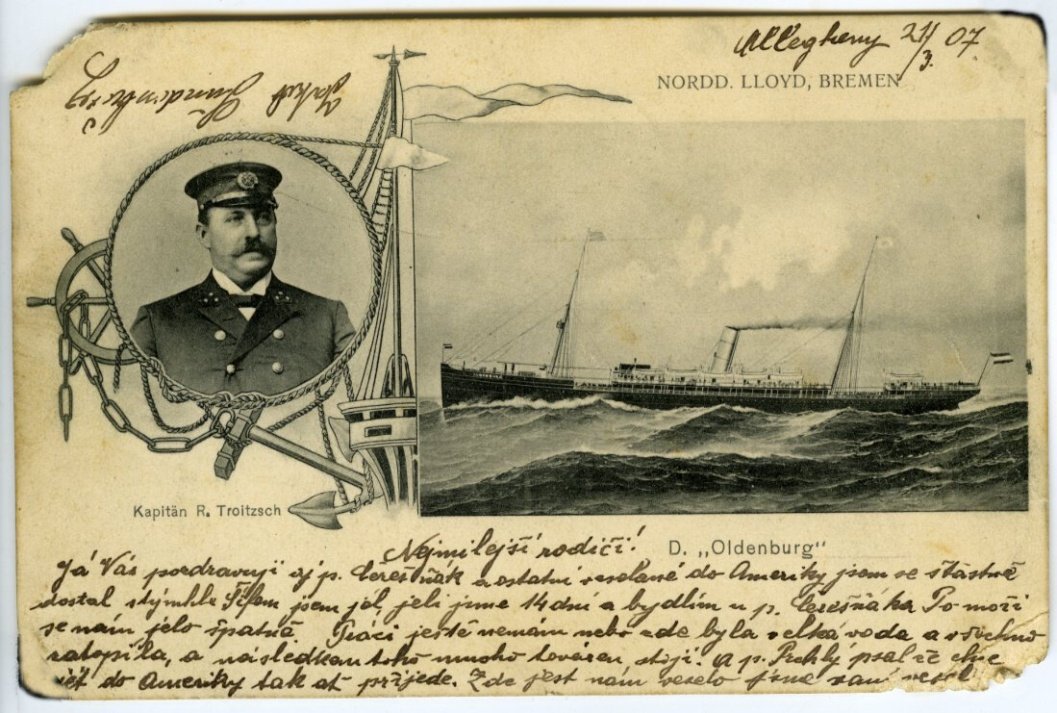 Allegheny 21/3. 07.
NORDD. LLOYD, BREMEN
Kapitän R. Troitzsch
D. „Oldenburg"
Nejmilejší rodiči!
Já Vás pozdravuji aj p. Cerešňák a ostatní do Ameriky jsem se štástně
dostal s týmhle Šífem jsem jel, jeli jsme 14 dní a bydlím u p. Cerešňáka Po moři
se nám jelo špatně. Práci ještě nemám nebo zde byla velká voda a všechno
zatopila, a následkem toho mnoho továren stojí. A p. psal že chce
jít do Ameriky tak ať přijede. Zde jest nám veselo jsme